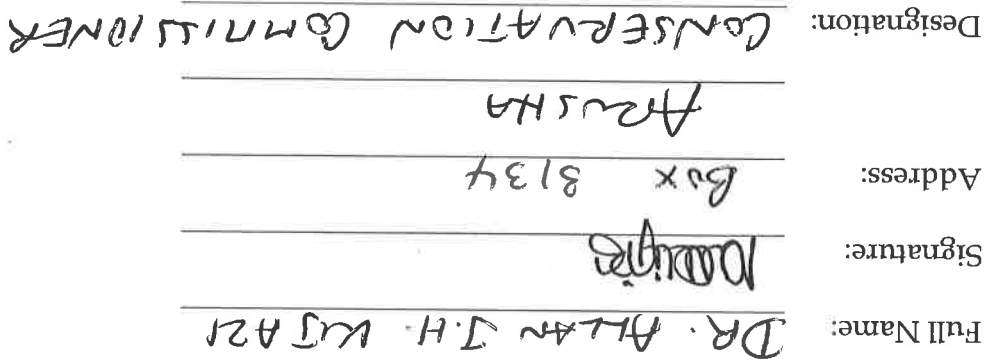 Full Name: DR. ALLAN J.H. KIJAZI
Signature:
Address: BOX 3134
ARUSHA
Designation: CONSERVATION COMMISSIONER